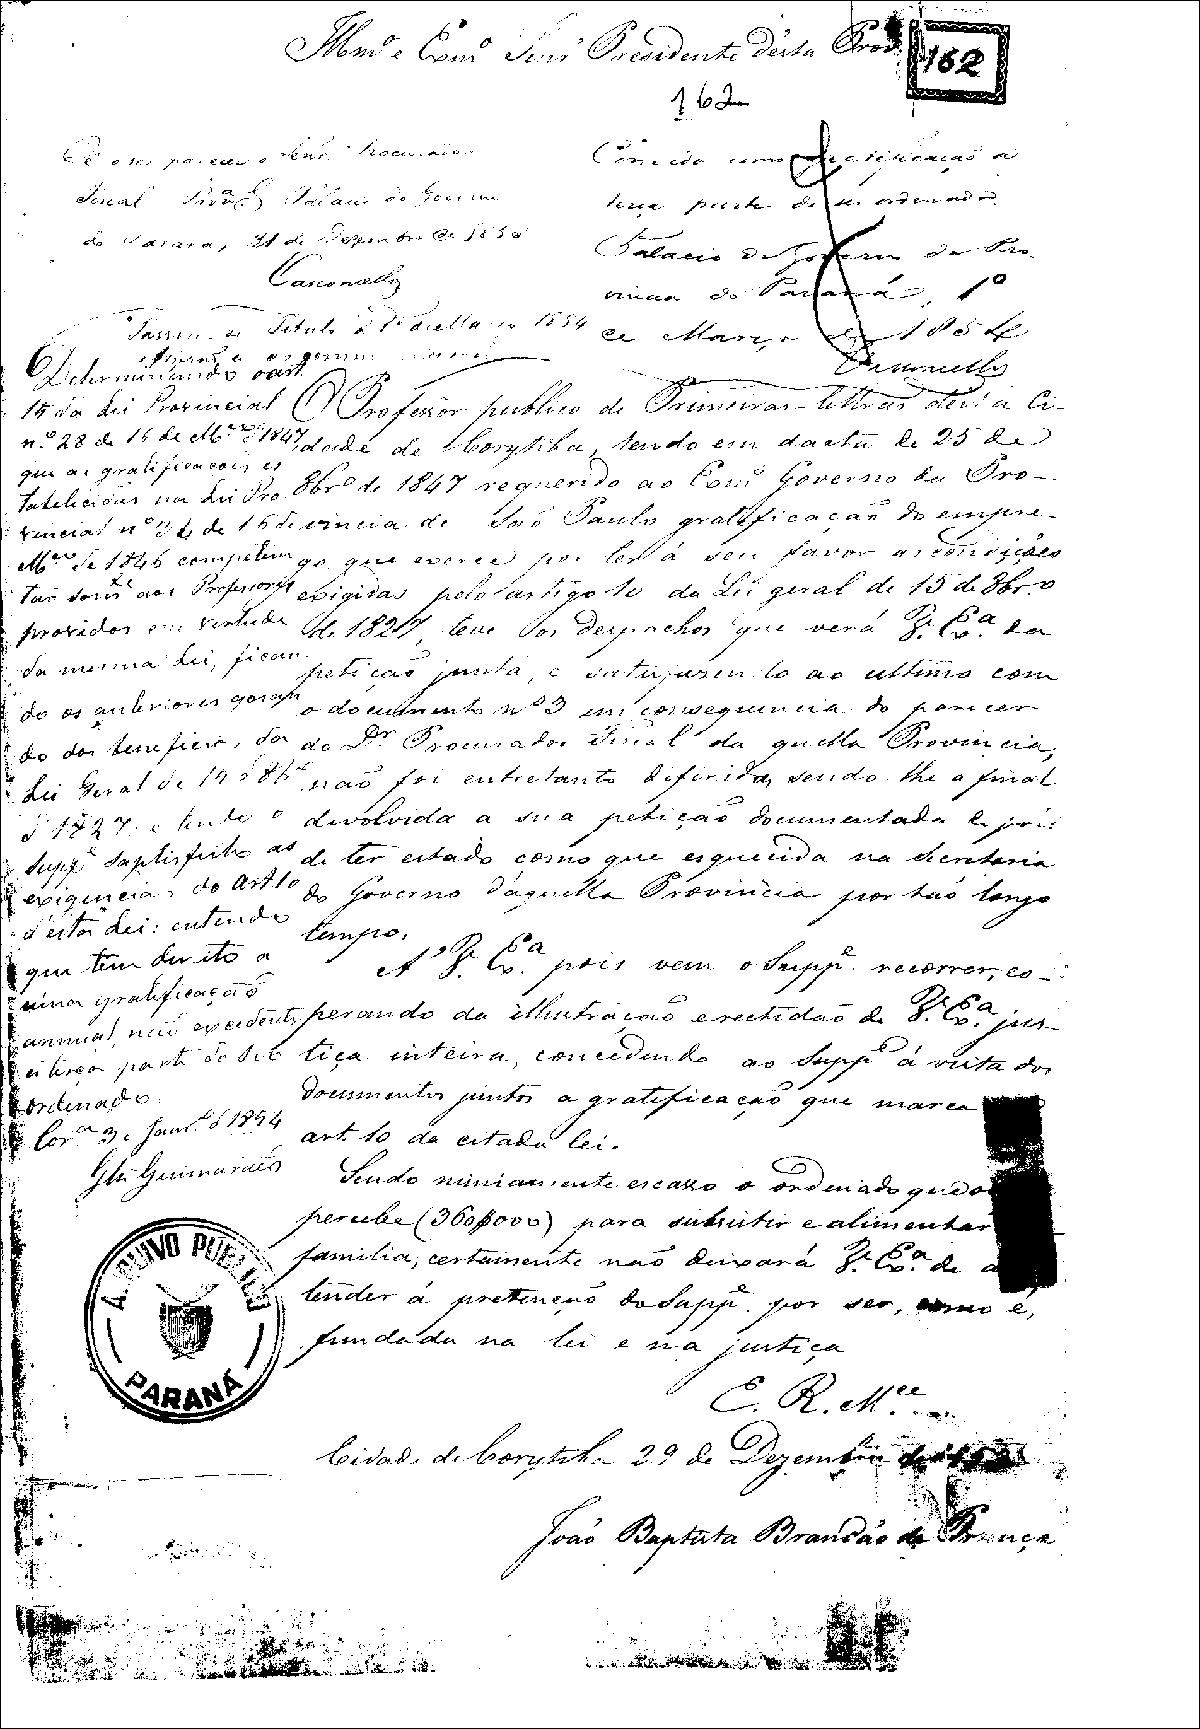 Illmo e Exmo Senr Presidente desta Prov
162
162
parecer o Senr Procurador
Fiscal Palacio do Governo
do Paraná, 31 de Dezembro de 1853
Vasconcellos
Concedo como gratificação a
terça parte de seu ordenado
Palacio do Governo da Pro
vincia do Paraná, 1º
de Março de 1854
Vasconcellos
Titulo 1854
Determinando o art.
15 da Lei Provincial
n.º 28 de 16 de Mço de 1847
que as gratificacois es
tabelicidas na Lei Pro
vincial nº 34 de 16 de
Mço de 1846 competem
tão somte aos Professores
providos em virtude
da mesma Lei, fican
do os anteriores gosan
do dos beneficios da
Lei Geral de 15 8bro
1827: e tendo o
Suppe saptisfeito as
exigencias do Art 10
d'esta Lei: entendo
que tem direito a
uma gratificação
annual, não excedente
a terça parte do seo
ordenado.
Cor.a 3 de Janr.o d 1854
Guimaraẽs
O Professor publico de Primeiras lettras desta Ci-
dade de Corytiba, tendo em dacta de 25 de
8bro de 1847 requerido ao Exmo Governo da Pro-
vincia de São Paulo gratificação do empre-
go que exerce por ter á seu favor as condições
exigidas pelo artigo 10 da Lei geral de 15 de 8bro
de 1827, teve os despachos que verá V. Exa. da
petição junta, e satisfazendo ao ultimo com
o documento nº 3 em consequencia do parecer
do Dr Procurador Fiscal da quella Provincia,
não foi entretanto diferida, sendo-lhe a final
devolvida a sua petição documentada depois
de ter estado como que esquecida na Secretaria
do Governo d'aquella Provincia por tão longo
tempo.
A' V. Exa. pois vem o Suppe. recorrer, es-
perando da illustração e rectidão de V. Exa. jus-
tiça inteira, concedendo ao Suppe á vista dos
documentos juntos a gratificação que marca
art. 10 da citada lei.
Sendo nimiamente escasso o ordenado que
percebe (360$000) para subsistir e alimentar
familia, certamente não deixará V. Exa. de a
tender á pretenção do Suppe. por ser, como é,
fundada na lei e na justiça
E. R. Mce
Cidade de Corytiba 29 de Dezembro de
João Baptista Brandão de Proença
ARQUIVO PUBLICO
PARANÁ